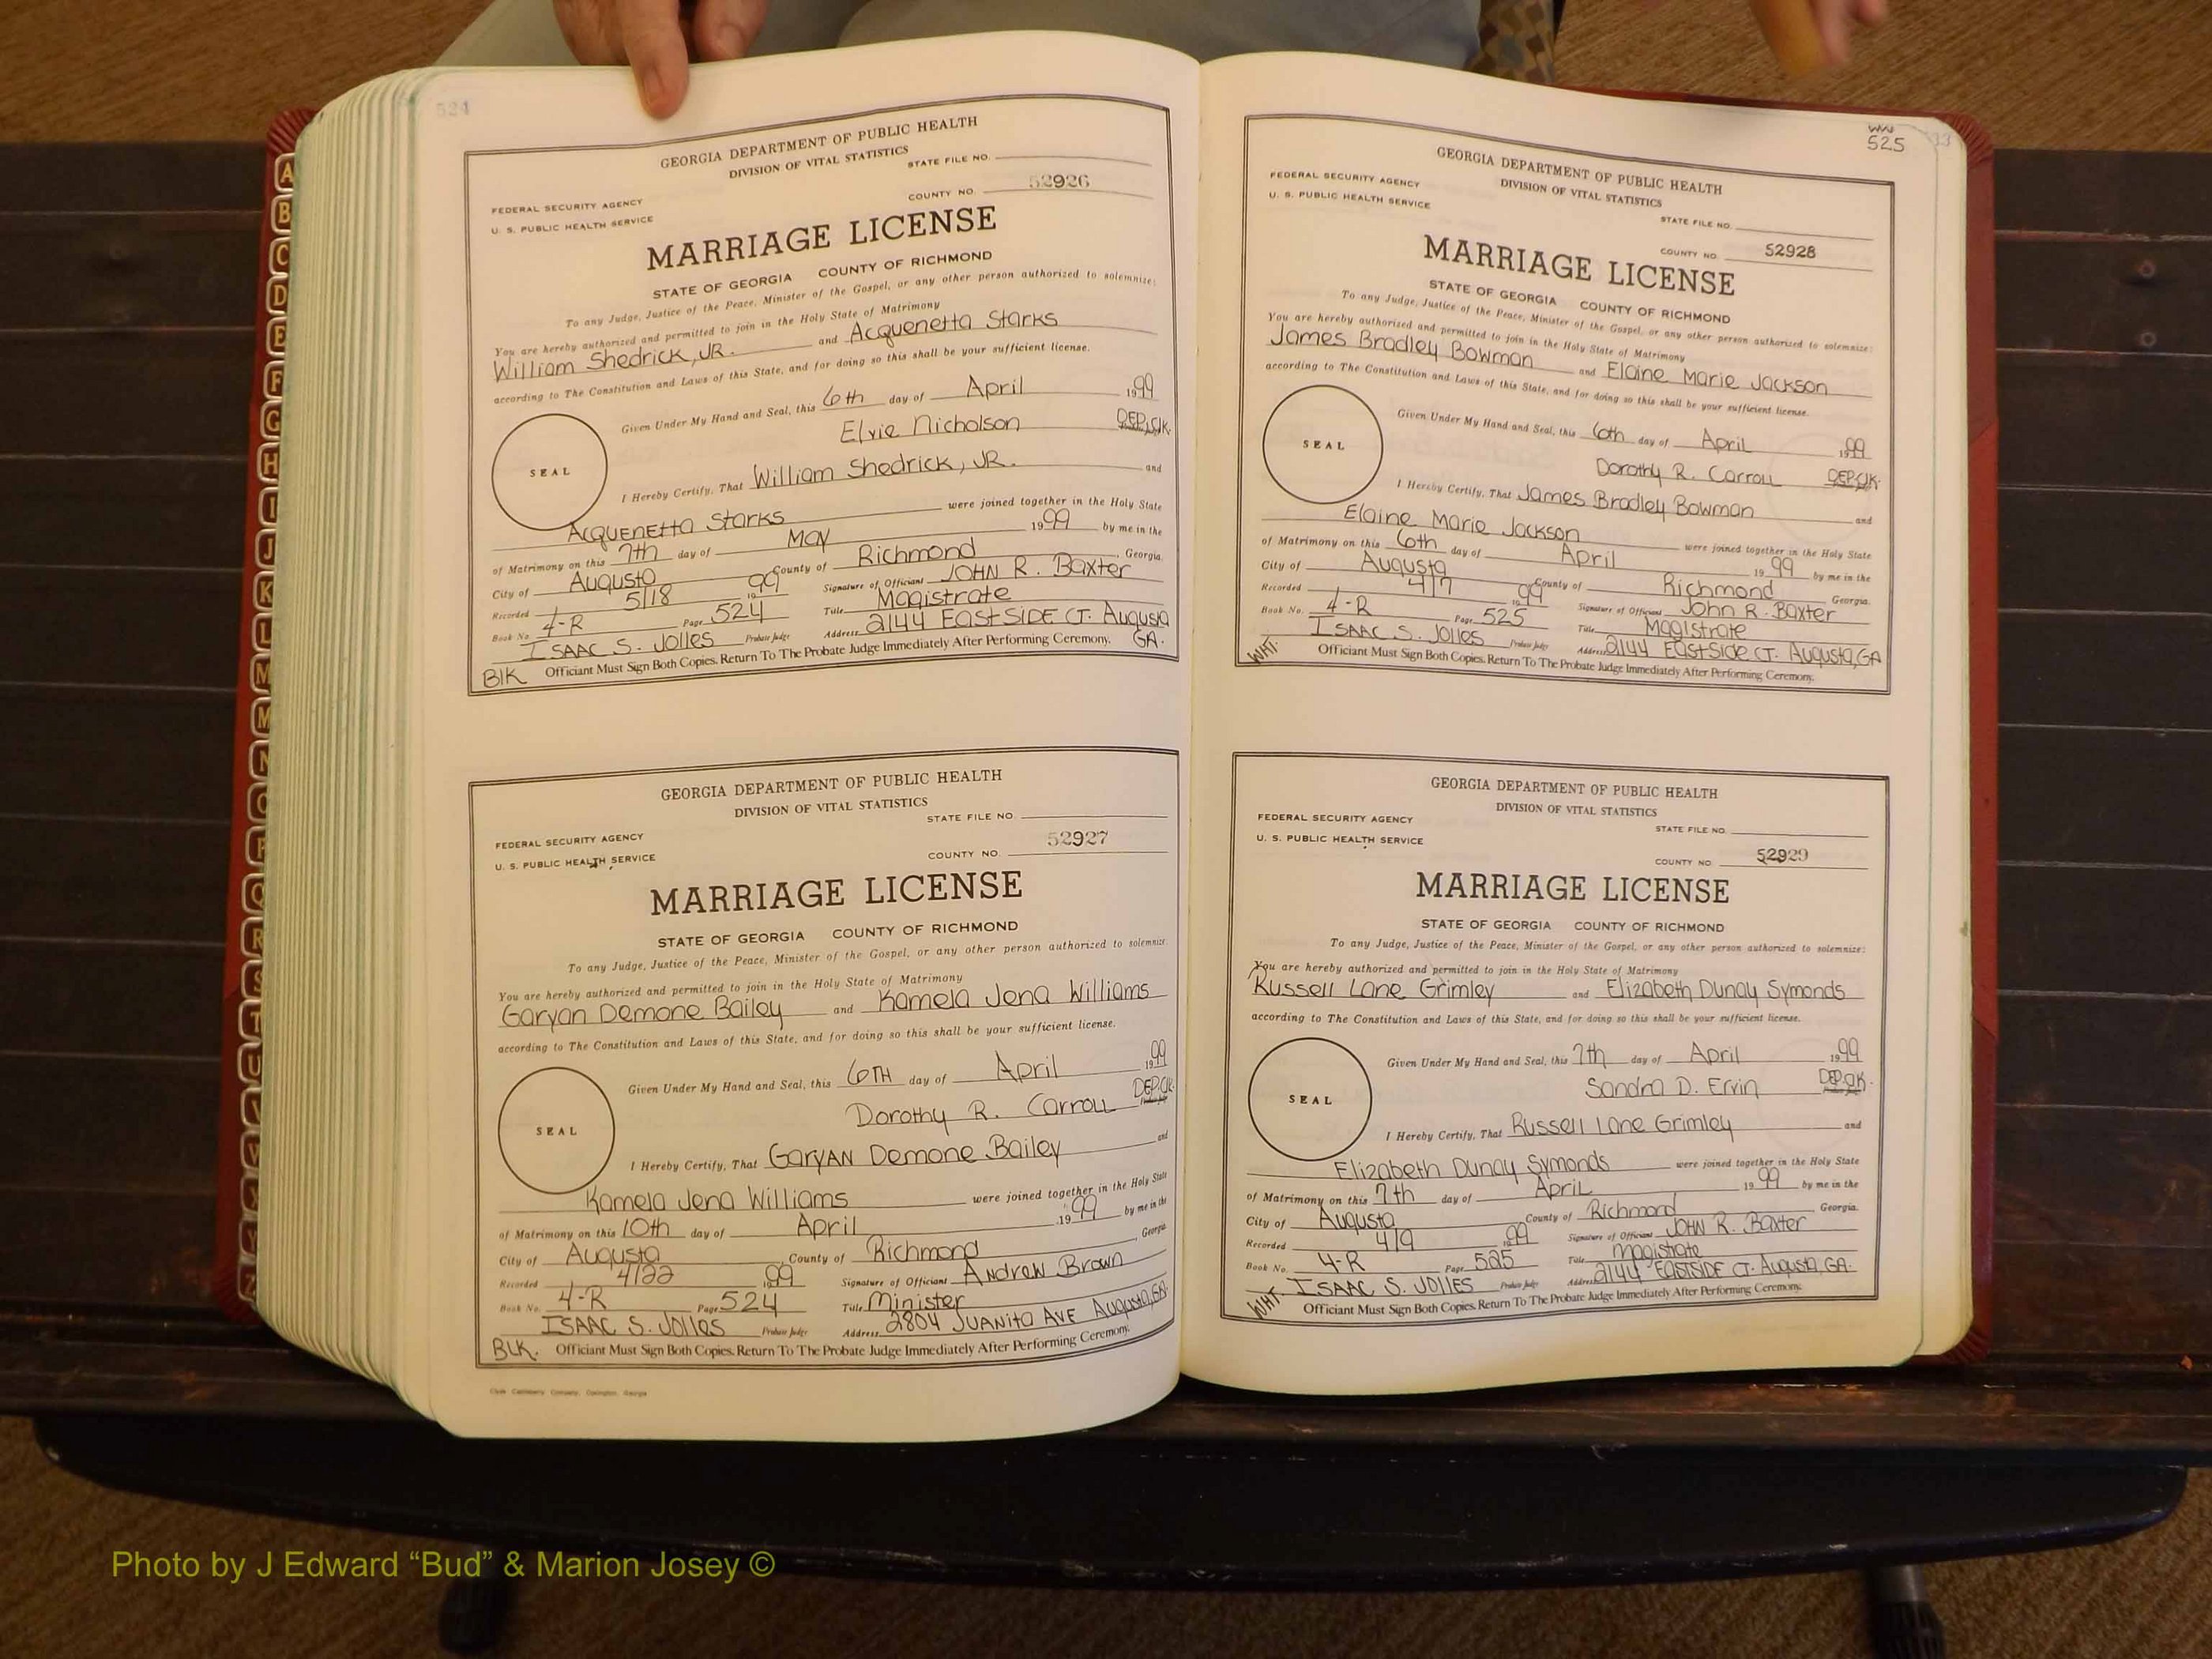 524
GEORGIA DEPARTMENT OF PUBLIC HEALTH
DIVISION OF VITAL STATISTICS
STATE FILE NO.
COUNTY NO. 52926
FEDERAL SECURITY AGENCY
U. S. PUBLIC HEALTH SERVICE
MARRIAGE LICENSE
STATE OF GEORGIA COUNTY OF RICHMOND
To any Judge, Justice of the Peace, Minister of the Gospel, or any other person authorized to solemnize:
You are hereby authorized and permitted to join in the Holy State of Matrimony
William Shedrick, JR. and Acquenetta Starks
according to The Constitution and Laws of this State, and for doing so this shall be your sufficient license.
Given Under My Hand and Seal, this 6th day of April 1999
Elvie Nicholson DEP.CK.
SEAL
I Hereby Certify, That William Shedrick, JR. and
Acquenetta Starks were joined together in the Holy State
of Matrimony on this 7th day of May 1999 by me in the
City of Augusta County of Richmond, Georgia.
Recorded 5/18 1999 Signature of Officiant JOHN R. Baxter
Book No. 4-R Page 524 Title Magistrate
ISAAC S. Jolles Probate Judge Address 2144 EastSIDE CT. Augusta GA.
BlK Officiant Must Sign Both Copies. Return To The Probate Judge Immediately After Performing Ceremony.
GEORGIA DEPARTMENT OF PUBLIC HEALTH
DIVISION OF VITAL STATISTICS
STATE FILE NO.
FEDERAL SECURITY AGENCY
U. S. PUBLIC HEALTH SERVICE
COUNTY NO. 52927
MARRIAGE LICENSE
STATE OF GEORGIA COUNTY OF RICHMOND
To any Judge, Justice of the Peace, Minister of the Gospel, or any other person authorized to solemnize
You are hereby authorized and permitted to join in the Holy State of Matrimony
Garyan Demone Bailey and Kamela Jena Williams
according to The Constitution and Laws of this State, and for doing so this shall be your sufficient license.
Given Under My Hand and Seal, this 6TH day of April 1999
Dorothy R. Carroll DEP.CK.
SEAL
I Hereby Certify, That GaryAN Demone Bailey and
Kamela Jena Williams were joined together in the Holy State
of Matrimony on this 10th day of April 1999 by me in the
City of Augusta, County of Richmond, Georgia
Recorded 4/22 1999 Signature of Officiant Andrew Brown
Book No. 4-R Page 524 Title Minister
ISAAC S. Jolles Probate Judge Address 2804 JUANita AVE Augusta, GA.
BLK. Officiant Must Sign Both Copies. Return To The Probate Judge Immediately After Performing Ceremony.
WW
525
GEORGIA DEPARTMENT OF PUBLIC HEALTH
DIVISION OF VITAL STATISTICS
FEDERAL SECURITY AGENCY
U. S. PUBLIC HEALTH SERVICE
STATE FILE NO.
COUNTY NO. 52928
MARRIAGE LICENSE
STATE OF GEORGIA COUNTY OF RICHMOND
To any Judge, Justice of the Peace, Minister of the Gospel, or any other person authorized to solemnize:
You are hereby authorized and permitted to join in the Holy State of Matrimony
James Bradley Bowman and Elaine Marie Jackson
according to The Constitution and Laws of this State, and for doing so this shall be your sufficient license.
Given Under My Hand and Seal, this 6th day of April 1999
Dorothy R. Carroll DEP.CK.
SEAL
I Hereby Certify, That James Bradley Bowman and
Elaine Marie Jackson were joined together in the Holy State
of Matrimony on this 6th day of April 1999 by me in the
City of Augusta County of Richmond Georgia.
Recorded 4/7 1999 Signature of Officiant John R. Baxter
Book No. 4-R Page 525 Title Magistrate
ISAAC S. Jolles Probate Judge Address 2144 EastSide CT. Augusta, GA
WHT. Officiant Must Sign Both Copies. Return To The Probate Judge Immediately After Performing Ceremony.
GEORGIA DEPARTMENT OF PUBLIC HEALTH
DIVISION OF VITAL STATISTICS
FEDERAL SECURITY AGENCY
STATE FILE NO.
U. S. PUBLIC HEALTH SERVICE
COUNTY NO 52929
MARRIAGE LICENSE
STATE OF GEORGIA COUNTY OF RICHMOND
To any Judge, Justice of the Peace, Minister of the Gospel, or any other person authorized to solemnize:
You are hereby authorized and permitted to join in the Holy State of Matrimony
Russell Lane Grimley and Elizabeth Dunay Symonds
according to The Constitution and Laws of this State, and for doing so this shall be your sufficient license.
Given Under My Hand and Seal, this 7th day of April 1999
Sandra D. Ervin DEP.CK.
SEAL
I Hereby Certify, That Russell Lane Grimley and
Elizabeth Dunay Symonds were joined together in the Holy State
of Matrimony on this 7th day of April 1999 by me in the
City of Augusta County of Richmond Georgia.
Recorded 4/9 1999 Signature of Officiant JOHN R. Baxter
Book No. 4-R Page 525 Title Magistrate
ISAAC S. Jolles Probate Judge Address 2144 EASTSIDE CT. Augusta, GA.
WHT. Officiant Must Sign Both Copies. Return To The Probate Judge Immediately After Performing Ceremony.
A
B
C
D
E
F
G
H
I
J
K
L
M
M
N
O
P
Q
R
S
T
U
V
W
X
Y
Z
Photo by J Edward “Bud” & Marion Josey ©